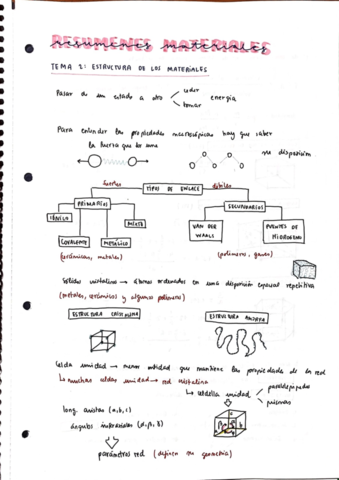 RESUMENES MATERIALES
resumenes materiales
TEMA 1: ESTRUCTURA DE LOS MATERIALES
Pasar de un estado a otro
ceder
tomar
energía
Para entender las propiedades macroscópicas hay que saber
la fuerza que los une
su disposición
fuertes
TIPOS DE ENLACE
débiles
PRIMARIOS
SECUNDARIOS
IÓNICO
MIXTO
COVALENTE
METÁLICO
VAN DER WAALS
PUENTES DE HIDRÓGENO
(cerámicas, metales)
(polímeros, gases)
Sólidos cristalinos → átomos ordenados en una disposición espacial repetitiva
(metales, cerámicos y algunos polímeros)
ESTRUCTURA CRISTALINA
ESTRUCTURA AMORFA
Celda unidad → menor entidad que mantiene las propiedades de la red
↳ muchas celdas unidad → red cristalina
↳ celdilla unidad
paralelepípedos
prismas
long. aristas (a, b, c)
ángulos interaxiales (α, β, γ)
parámetros red (definen su geometría)